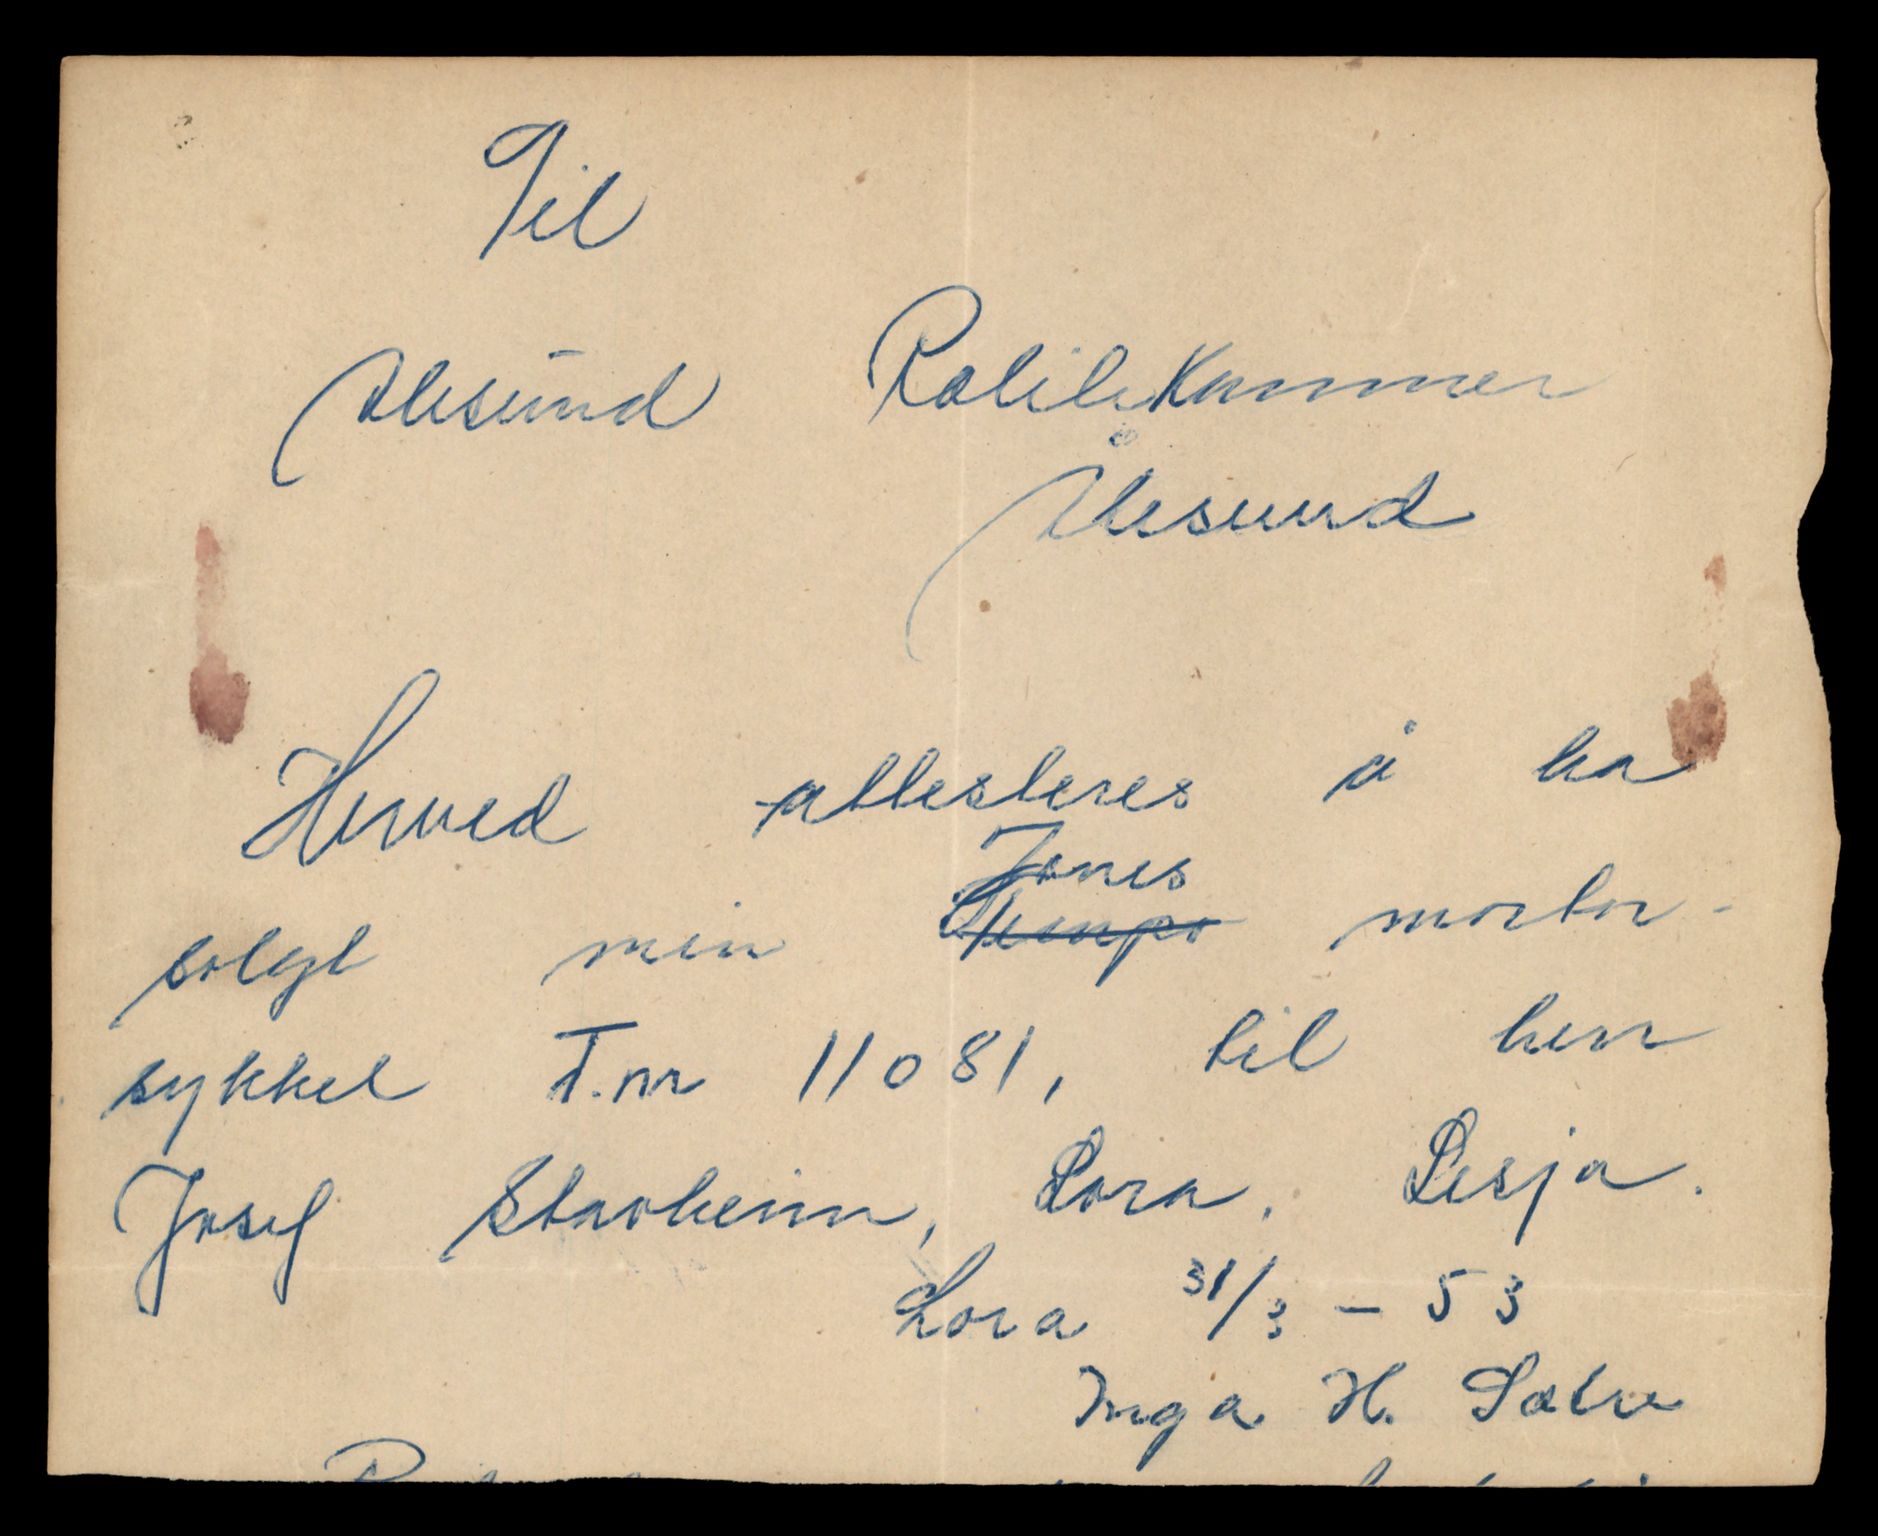 Til
Alesund Politikammer
Ålesund
Herved attesteres å ha
Jones
solgt min Tempo mortor-
sykkel T.nr 11081, til herr
Josef Stavheim, Lora, Lesja.
Lora 31/3 - 53
Inga H. Sætre